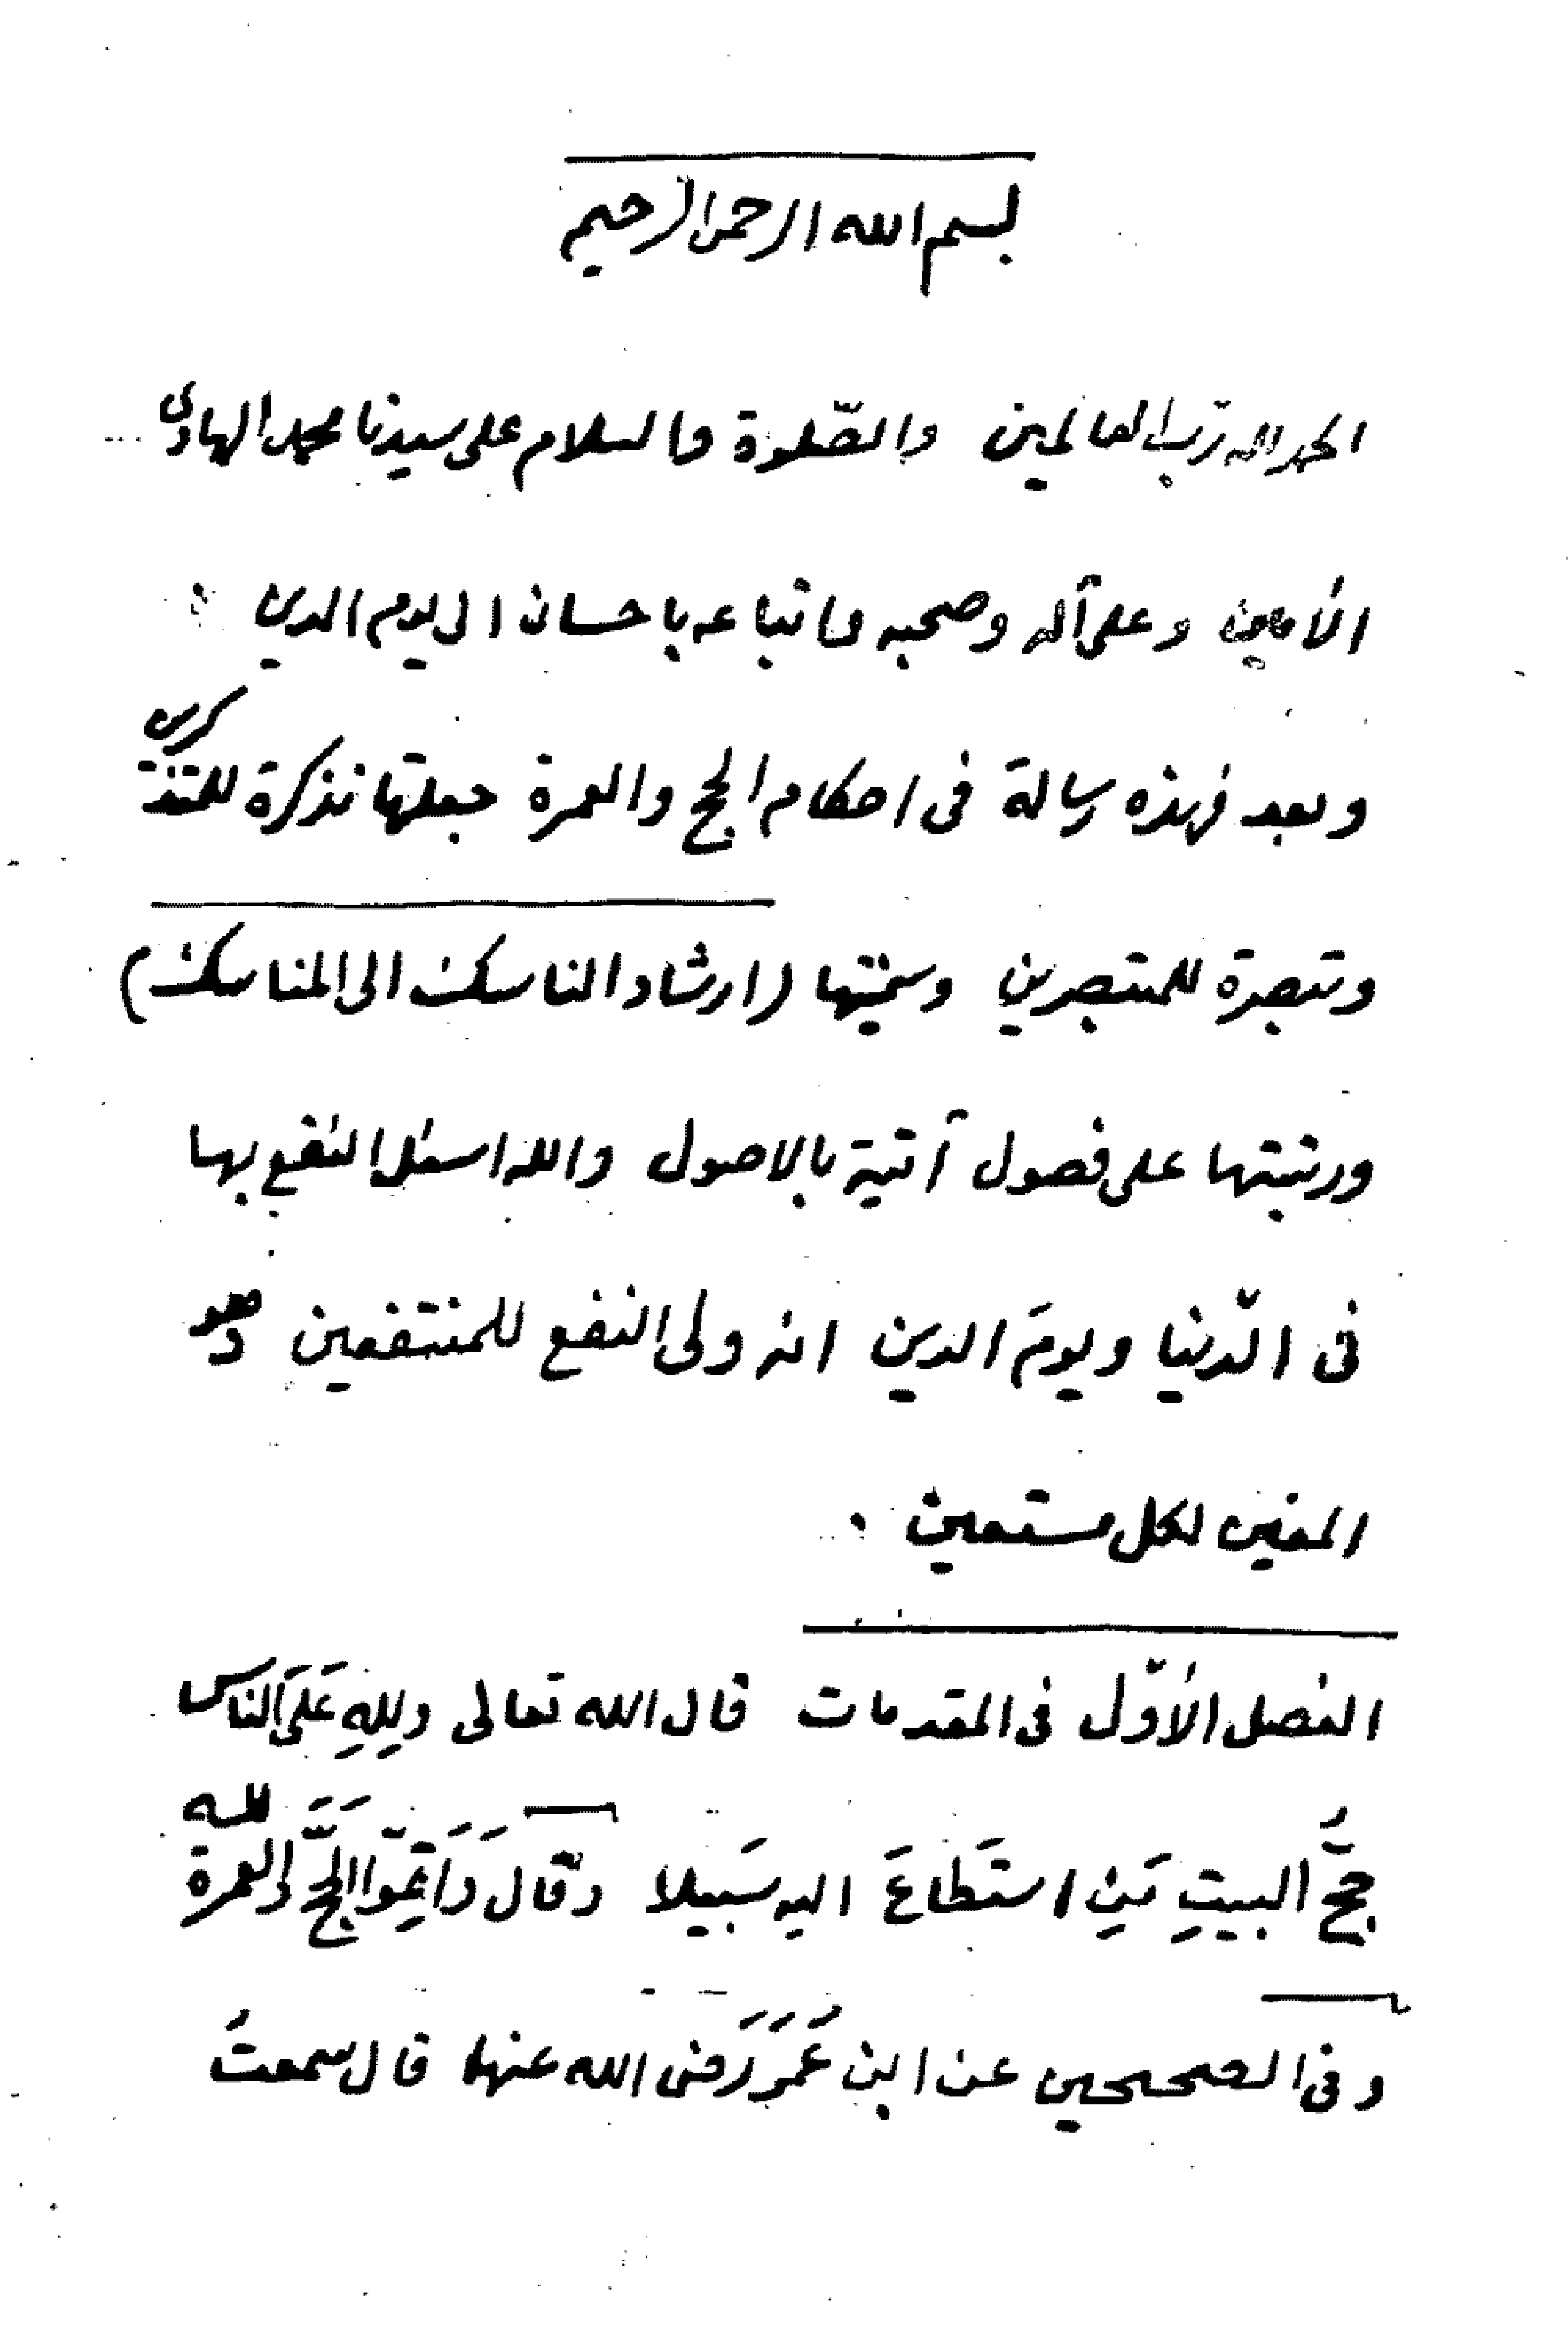 بسم الله الرحمن الرحيم
الحمد لله ربّ العالمين والصّلوة والسلام على سيدنا محمد الهادى
الأمين وعلى آله وصحبه واتباعه باحسان الى يوم الدين
وبعد فهذه رسالة فى احكام الحج والعمرة جعلتها تذكرة للمتذكرين
وتبصرة للمتبصرين وسمّيتها (ارشاد الناسك الى المناسك)
ورتبتها على فصول آتية بالاصول والله اسئل النفع بها
فى الدّنيا ويومَ الدين انه ولى النفع للمنتفعين وهو
المعين لكل مستعين .
الفصل الأوّل فى المقدمات قال الله تعالى ولِلهِ عَلَى الناس
حجُّ البيتِ مَنِ استَطاعَ اليه سَبيلا وقال وَاَتِمّوا الحَجَّ والعمرة لله
وفى الصحيحين عن ابن عُمَرَ رَضى الله عنهما قال سمعتُ